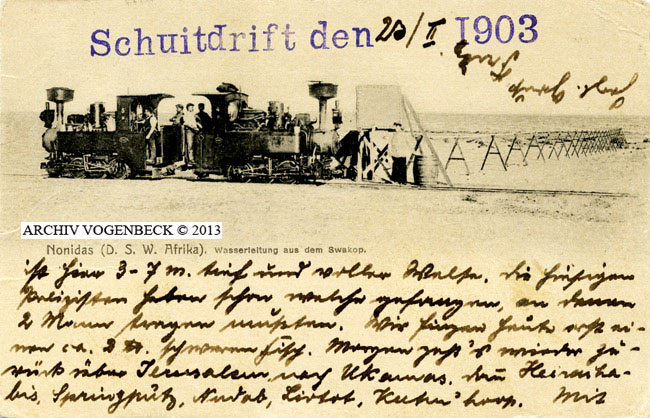 Schuitdrift den 23/II 1903
ARCHIV VOGENBECK © 2013
Nonidas (D. S. W. Afrika). Wasserleitung aus dem Swakop.
ist hier 3-7 m. tief und voller Welse, die hiesigen
Polizisten haben schon welche gefangen, an denen
2 Mann tragen mußten. Wir fingen heute erst ei-
nen ca. 2 schweren Fisch. Morgen geht's wieder zu-
rück über Jerusalem, nach Ukamas, dann Heiracha-
bis, Springpütz, Nudab, Hoop. Mit